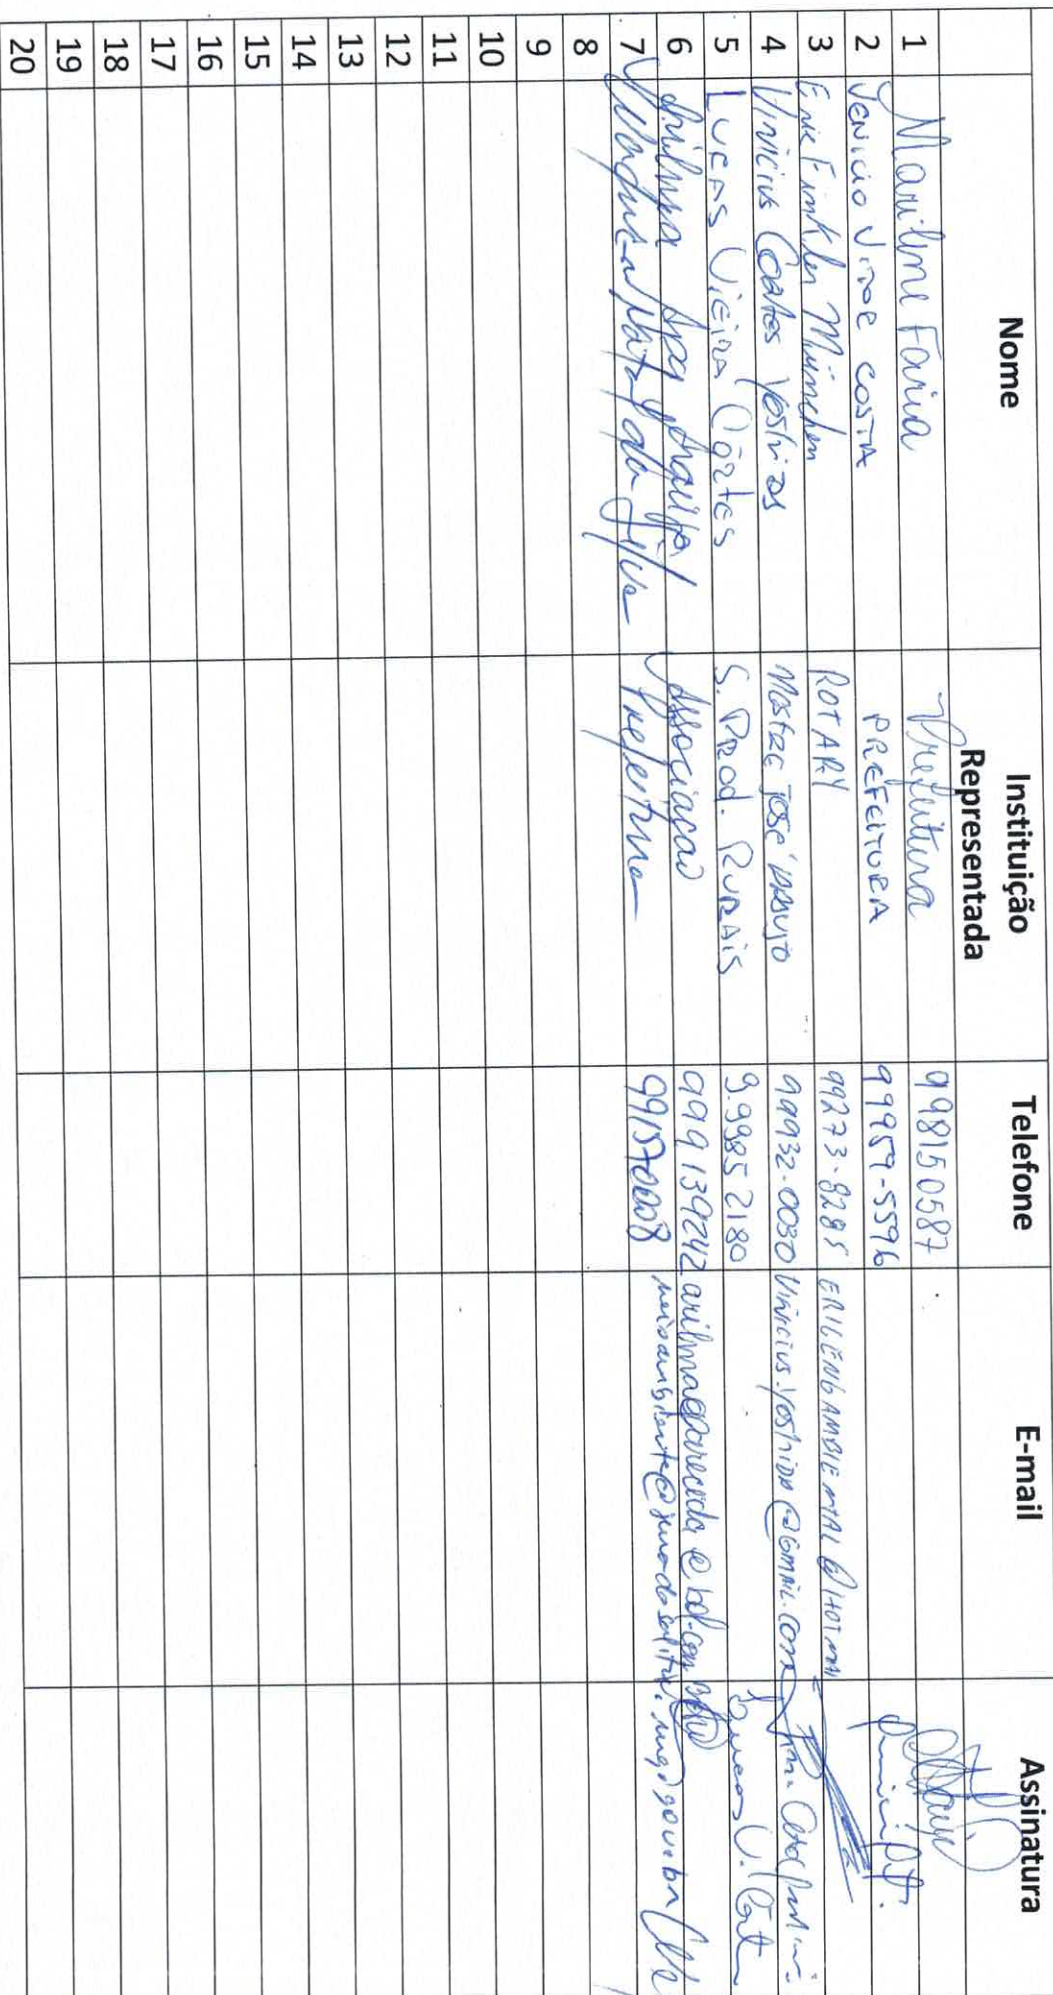 Nome Instituição Representada Telefone E-mail Assinatura
1 Marilene Faria Prefeitura 998150587
2 JENICIO VITOR COSTA PREFEITURA 99959-5596
3 Eric Finkler München ROTARY 99273-8285 ERICENGAMBIENTAL@HOTMAI
4 Vinicius Coates Yoshida Mestre José Araujo 99932-0030 Vinicius.yoshida@GMAIL.COM
5 Lucas Vieira Côrtes S. Prod. Rurais 9.99852180 Lucas V. Cort
6 Associação 999139242 arilmaaparecida@bol.com
7 da Silva Prefeitura 991570008
8
9
10
11
12
13
14
15
16
17
18
19
20